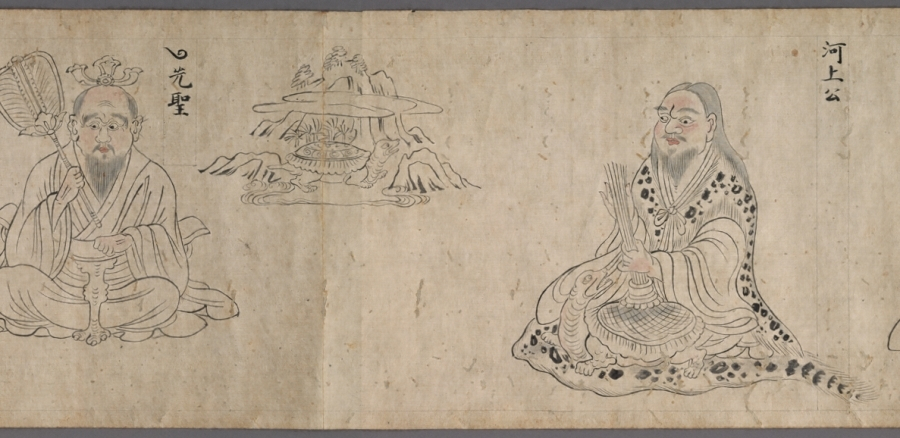 河上公
先聖